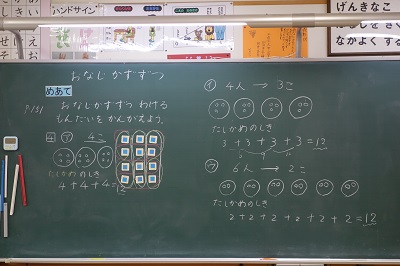 ハンドサイン
げんきなこ
なかよくする
おなじかずずつ
めあて
P.131
おなじかずずつ わける
もんだいを かんがえよう。
4 ㋐ 4こ
たしかめのしき
4+4+4=12
㋑ 4人 → 3こ
たしかめのしき
3+3+3+3=12
㋒ 6人 → 2こ
たしかめのしき
2+2+2+2+2+2=12